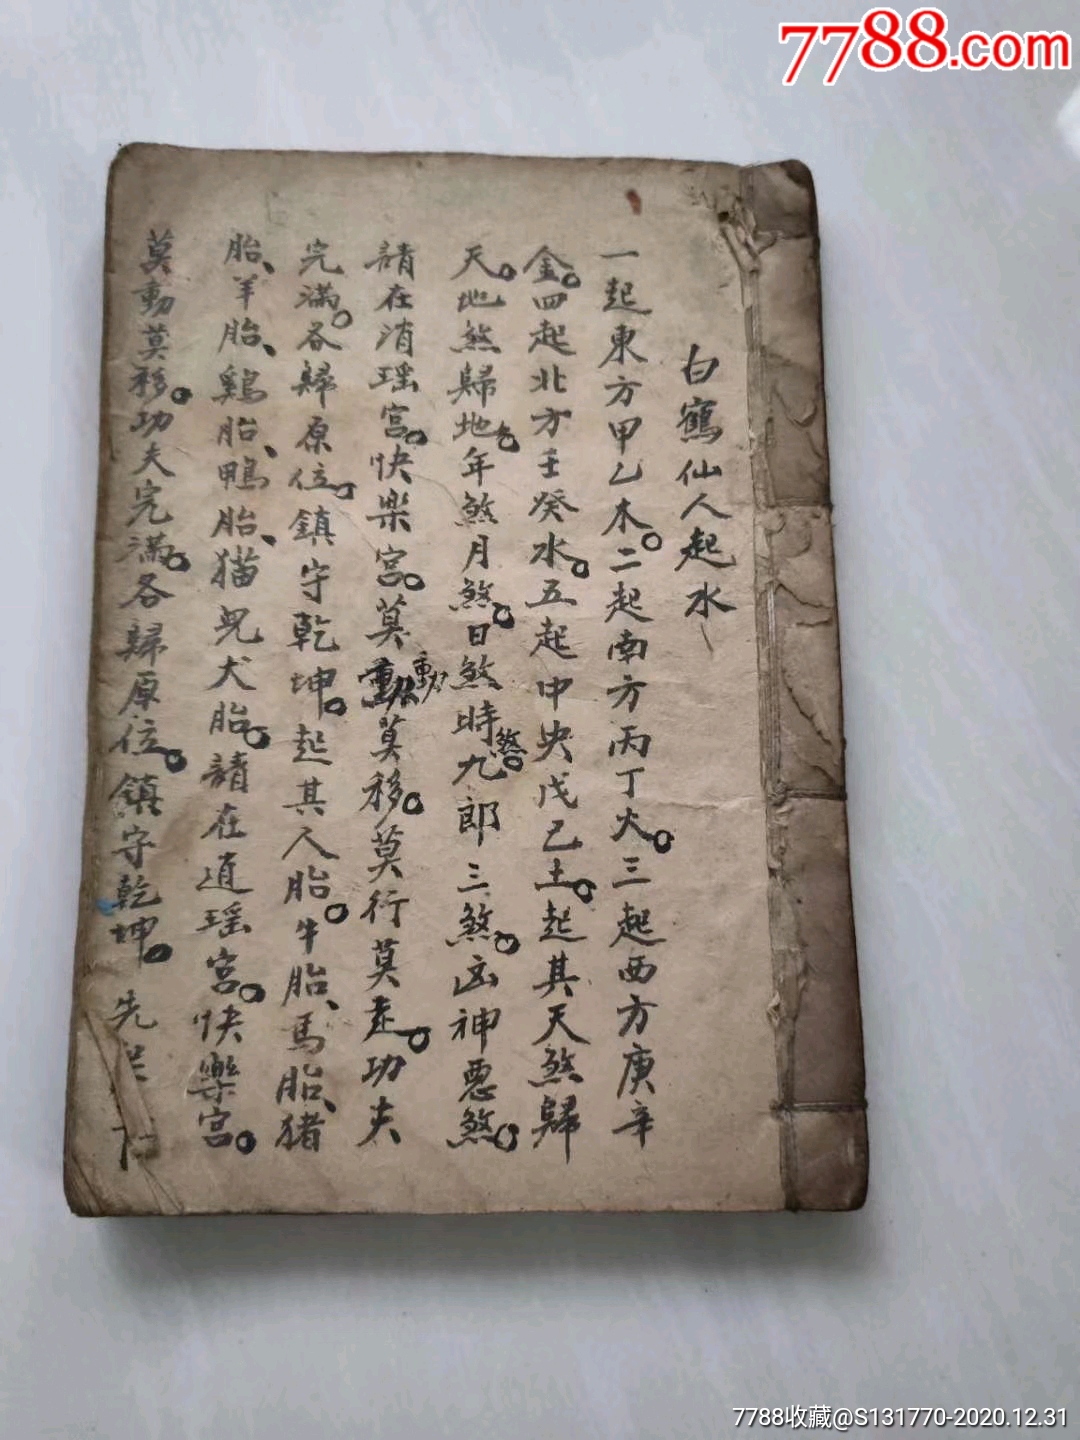 7788.com
白鶴仙人起水
一起東方甲乙木。二起南方丙丁火。三起西方庚辛
金。四起北方壬癸水。五起中央戊己土。起其天煞歸
天。地煞歸地。年煞月煞。日煞時煞。九郎三煞。凶神惡煞。
請在消瑶宫。快樂宫。莫動動莫移。莫行莫走。功夫
完滿。各歸原位。鎮守乾坤。起其人胎。牛胎、馬胎、猪
胎、羊胎、鷄胎、鴨胎、猫児犬胎。請在逍瑶宫。快樂宫。
莫動莫移。功夫完滿。各歸原位。鎮守乾坤。先
7788收藏@S131770-2020.12.31